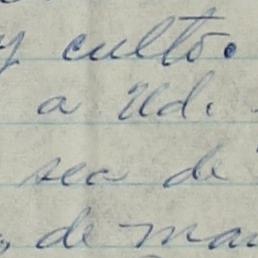 y culto.
a Ud.
sea de
de man